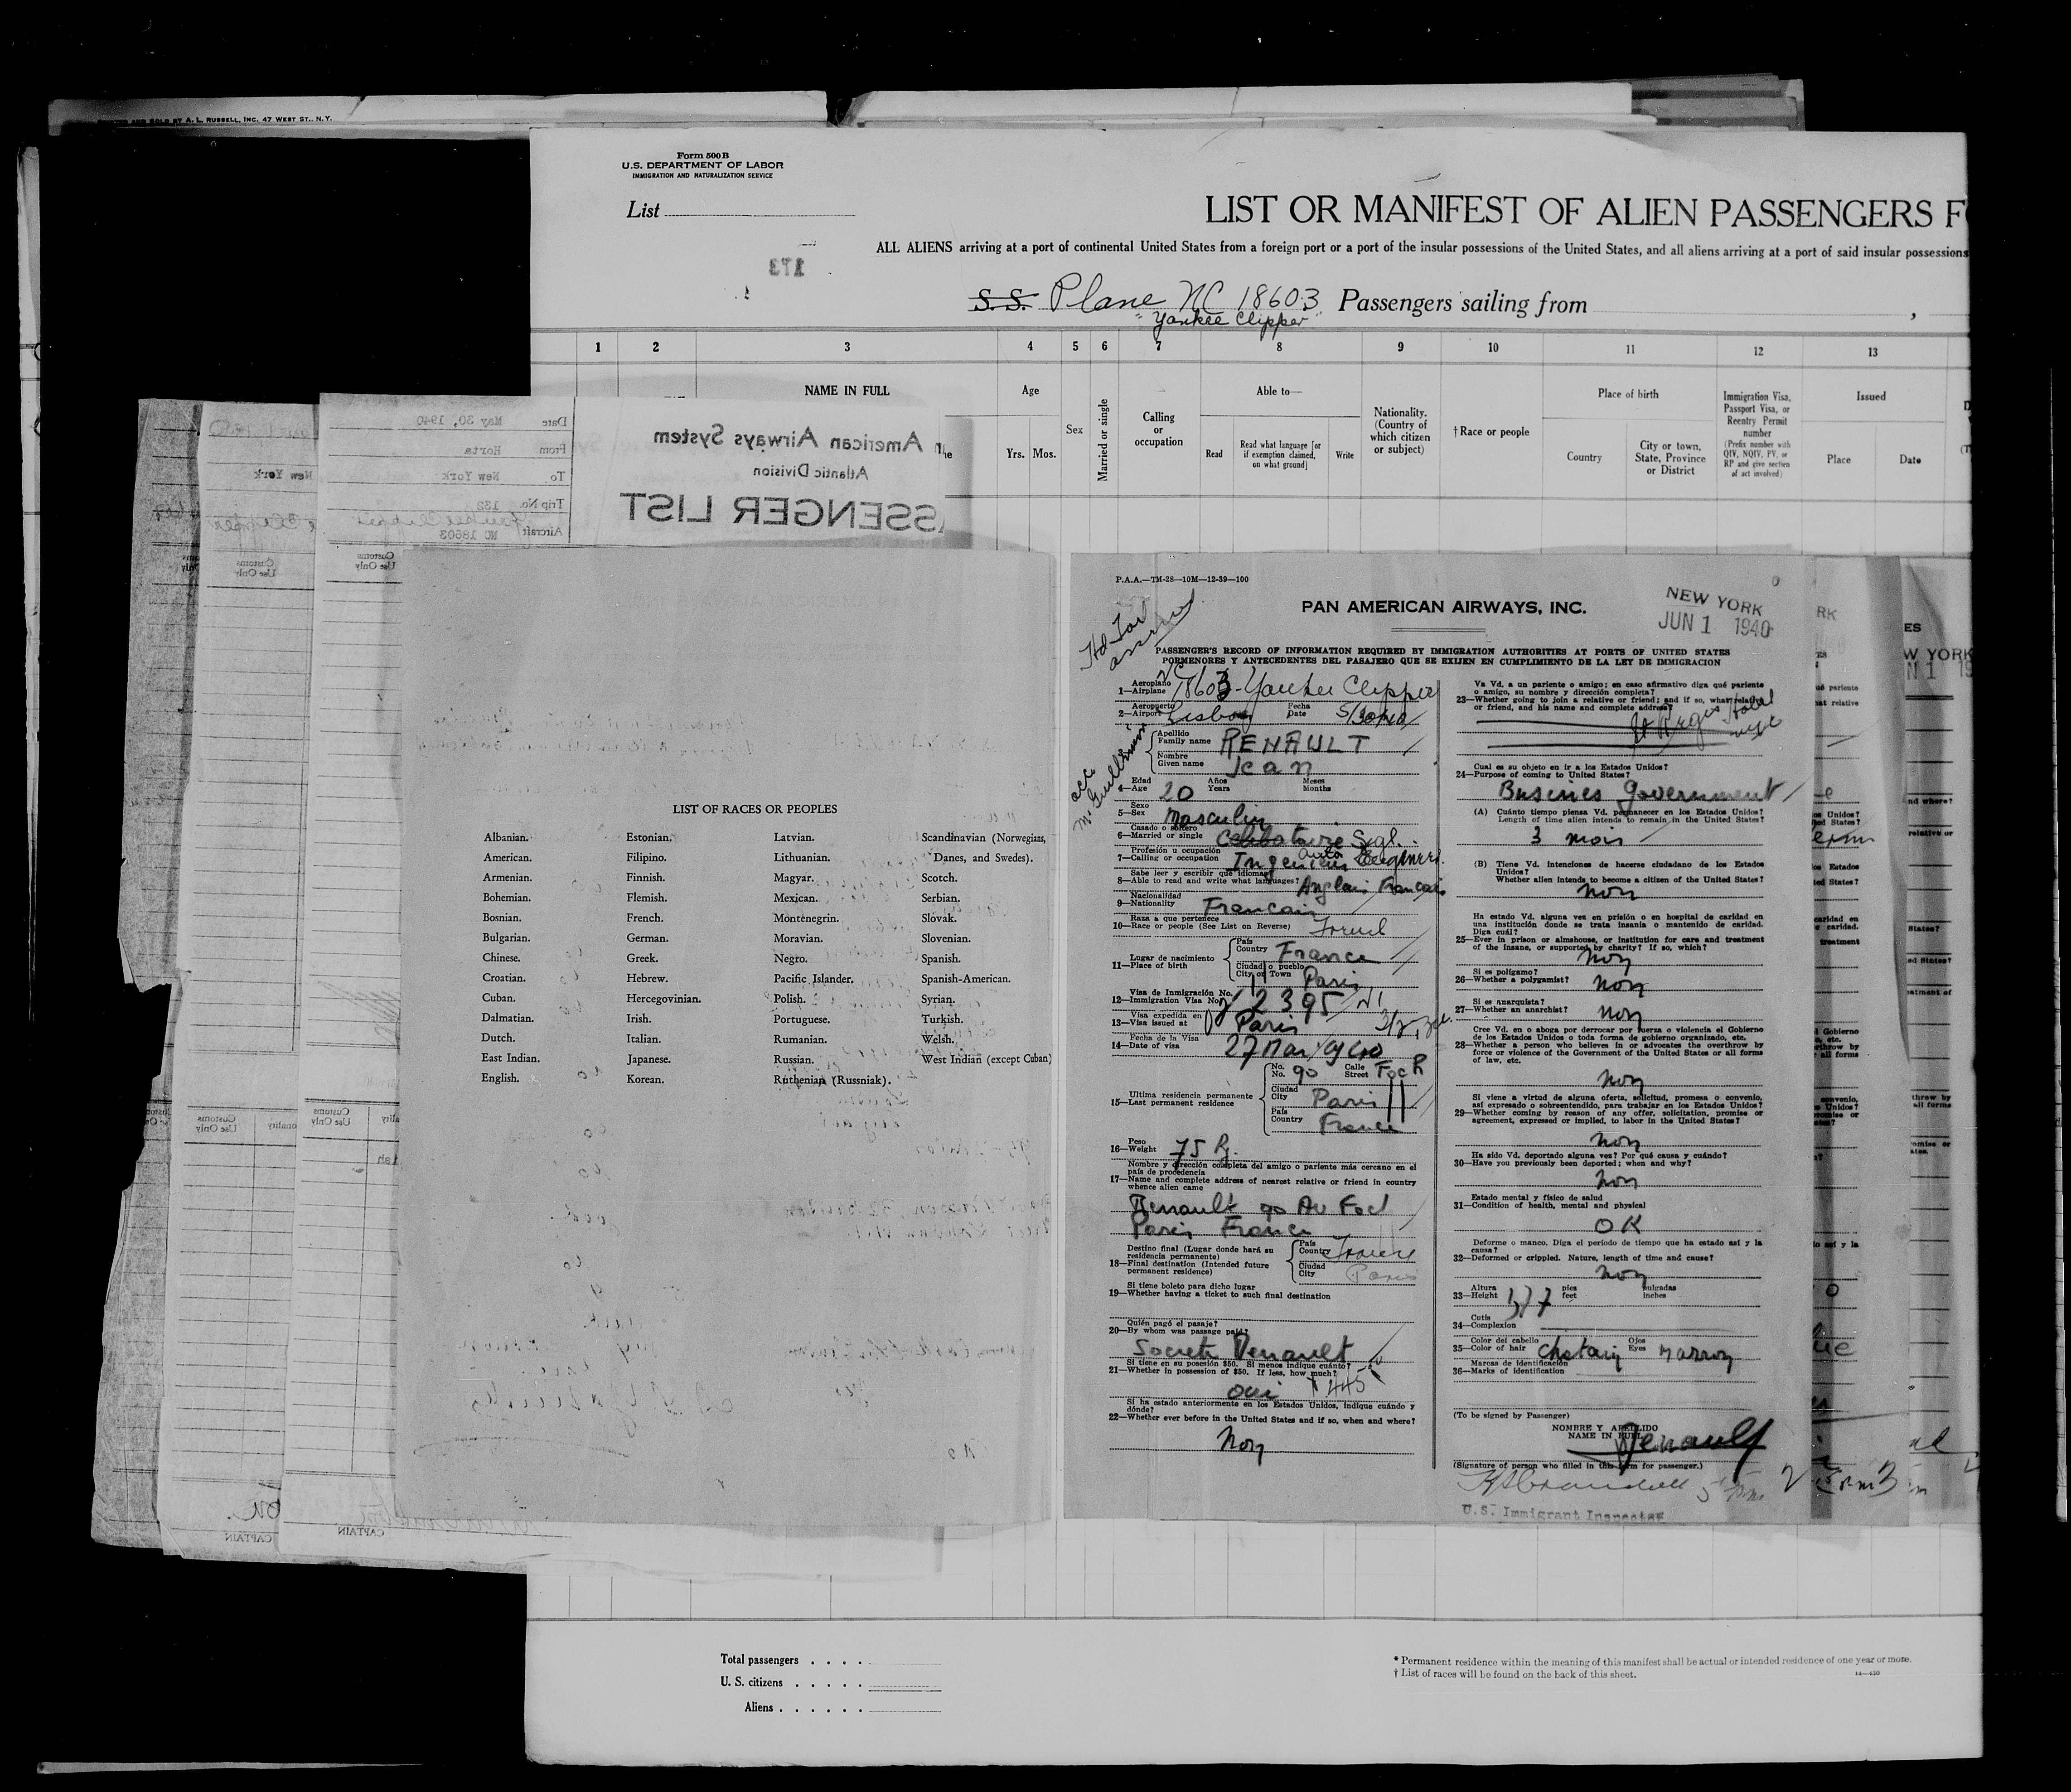 PRINTED AND SOLD BY A. L. RUSSELL, INC. 47 WEST ST., N.Y.
Form 500B
U.S. DEPARTMENT OF LABOR
IMMIGRATION AND NATURALIZATION SERVICE
List
LIST OR MANIFEST OF ALIEN PASSENGERS F
ALL ALIENS arriving at a port of continental United States from a foreign port or a port of the insular possessions of the United States, and all aliens arriving at a port of said insular possessions
173
S.S. Plane NC 18603 Passengers sailing from ,
"Yankee Clipper"
1 2 3 4 5 6 7 8 9 10 11 12 13
NAME IN FULL
Age
Yrs. Mos.
Sex
Married or single
Calling or occupation
Able to—
Read
Read what language [or if exemption claimed, on what ground]
Write
Nationality. (Country of which citizen or subject)
†Race or people
Place of birth
Country
City or town, State, Province or District
Immigration Visa, Passport Visa, or Reentry Permit number
(Prefix number with QIV, NQIV, PV, or RP and give section of act involved)
Issued
Place
Date
Date May 30, 1940
From Horta
To New York
Trip No. 132
Aircraft NC 18603
Yankee Clipper
American Airways System
Atlantic Division
SSENGER LIST
New York
Customs Use Only
Customs Use Only
Customs Use Only
Customs Use Only
CAPTAIN
CAPTAIN
LIST OF RACES OR PEOPLES
Albanian. Estonian. Latvian. Scandinavian (Norwegians,
American. Filipino. Lithuanian. Danes, and Swedes).
Armenian. Finnish. Magyar. Scotch.
Bohemian. Flemish. Mexican. Serbian.
Bosnian. French. Montenegrin. Slovak.
Bulgarian. German. Moravian. Slovenian.
Chinese. Greek. Negro. Spanish.
Croatian. Hebrew. Pacific Islander. Spanish-American.
Cuban. Hercegovinian. Polish. Syrian.
Dalmatian. Irish. Portuguese. Turkish.
Dutch. Italian. Rumanian. Welsh.
East Indian. Japanese. Russian. West Indian (except Cuban)
English. Korean. Ruthenian (Russniak).
P.A.A.—TM-28—10M—12-39—100
PAN AMERICAN AIRWAYS, INC.
NEW YORK
JUN 1 1940
PASSENGER'S RECORD OF INFORMATION REQUIRED BY IMMIGRATION AUTHORITIES AT PORTS OF UNITED STATES
PORMENORES Y ANTECEDENTES DEL PASAJERO QUE SE EXIJEN EN CUMPLIMIENTO DE LA LEY DE IMMIGRACION
Aeroplano
1—Airplane 18603-Yankee Clipper
Aeroporto Fecha
2—Airport Lisbon Date 5/30/40
Apellido
Family name RENAULT
Nombre
Given name Jean
Edad Años Meses
4—Age 20 Years Months
Sexo
5—Sex Masculin
Casado o soltero
6—Married or single Celibataire Sgl.
Profesión u ocupación
7—Calling or occupation Ingenieur auto Engineer.
Sabe leer y escribir que idiomas
8—Able to read and write what languages? Anglais Francais
Nacionalidad
9—Nationality Francais
Raza a que pertenece
10—Race or people (See List on Reverse) French
Lugar de nacimiento
11—Place of birth
País
Country France
Ciudad o pueblo
City or Town Paris
Visa de Inmigración No.
12—Immigration Visa No. 2395
Visa expedida en
13—Visa issued at Paris
Fecha de la Visa
14—Date of visa 27 Mai 1940
Ultima residencia permanente
15—Last permanent residence
No. Calle
No. 90 Street Foch
Ciudad
City Paris
País
Country France
Peso
16—Weight 75 Kg.
Nombre y dirección completa del amigo o pariente más cercano en el país de procedencia
17—Name and complete address of nearest relative or friend in country whence alien came
Renault 90 Av Foch
Paris France
Destino final (Lugar donde hará su residencia permanente)
18—Final destination (Intended future permanent residence)
País
Country France
Ciudad
City Paris
Si tiene boleto para dicho lugar
19—Whether having a ticket to such final destination
Quién pagó el pasaje?
20—By whom was passage paid?
Societe Renault
Si tiene en su posesión $50. Si menos indique cuánto?
21—Whether in possession of $50. If less, how much?
oui $445
Si ha estado anteriormente en los Estados Unidos, indique cuándo y dónde?
22—Whether ever before in the United States and if so, when and where?
Non
Va Vd. a un pariente o amigo; en caso afirmativo diga qué pariente o amigo, su nombre y dirección completa?
23—Whether going to join a relative or friend; and if so, what relative or friend, and his name and complete address?
St Regis Hotel
NYC
Cual es su objeto en ir a los Estados Unidos?
24—Purpose of coming to United States?
Busines Government
(A) Cuánto tiempo piensa Vd. permanecer en los Estados Unidos?
Length of time alien intends to remain in the United States?
3 mois
(B) Tiene Vd. intenciones de hacerse ciudadano de los Estados Unidos?
Whether alien intends to become a citizen of the United States?
Non
Ha estado Vd. alguna ves en prisión o en hospital de caridad en una institución donde se trata insania o mantenido de caridad. Diga cuál?
25—Ever in prison or almshouse, or institution for care and treatment of the insane, or supported by charity? If so, which?
Non
Si es polígamo?
26—Whether a polygamist? Non
Si es anarquista?
27—Whether an anarchist? Non
Cree Vd. en o aboga por derrocar por fuerza o violencia el Gobierno de los Estados Unidos o toda forma de gobierno organizado, etc.
28—Whether a person who believes in or advocates the overthrow by force or violence of the Government of the United States or all forms of law, etc.
Non
Si viene a virtud de alguna oferta, solicitud, promesa o convenio, así expresado o sobreentendido, para trabajar en los Estados Unidos?
29—Whether coming by reason of any offer, solicitation, promise or agreement, expressed or implied, to labor in the United States?
Non
Ha sido Vd. deportado alguna vez? Por qué causa y cuándo?
30—Have you previously been deported; when and why?
Non
Estado mental y físico de salud
31—Condition of health, mental and physical
OK
Deforme o manco. Diga el período de tiempo que ha estado así y la causa?
32—Deformed or crippled. Nature, length of time and cause?
Non
Altura pies pulgadas
33—Height 1,77 feet inches
Cutis
34—Complexion
Color del cabello Ojos
35—Color of hair chatain Eyes Marron
Marcas de identificación
36—Marks of identification
(To be signed by Passenger)
NOMBRE Y APELLIDO
NAME IN FULL Renault
(Signature of person who filled in this form for passenger.)
U.S. Immigrant Inspector
Total passengers . . . .
U. S. citizens . . . . .
Aliens . . . . . .
* Permanent residence within the meaning of this manifest shall be actual or intended residence of one year or more.
† List of races will be found on the back of this sheet.